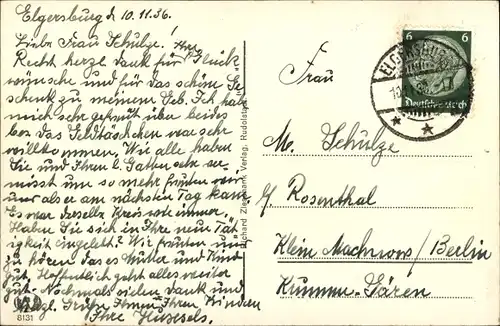 Elgersburg d. 10.11.36.
Liebe Frau Schulze!
Recht herzl. Dank für Ihre Glück
wünsche und für das schöne Ge-
schenk zu meinem Geb. Ich hab
mich sehr gefreut über beides
bes. das Geldtäschchen war sehr
willkommen. Wir alle haben
Sie und Ihren l. Gatten sehr ver-
misst um so mehr freuten wir
uns als er am nächsten Tag kam.
Es war derselbe Kreis wie immer.
Haben Sie sich in Ihre neue Tä-
tigkeit eingelebt? Wir freuten uns
zu hören das es Mutter und Kind
gut. Hoffentlich geht alles weiter
gut. Nochmals vielen Dank und
herzl. Grüße Ihnen Ihren Kindern
Ihre
8131
Richard Zieschank Verlag, Rudolstadt
6 6
Deutsches Reich
ELGERSBURG
Frau
M. Schulze
b/ Rosenthal
Klein Machnow / Berlin
Krumme-Gären